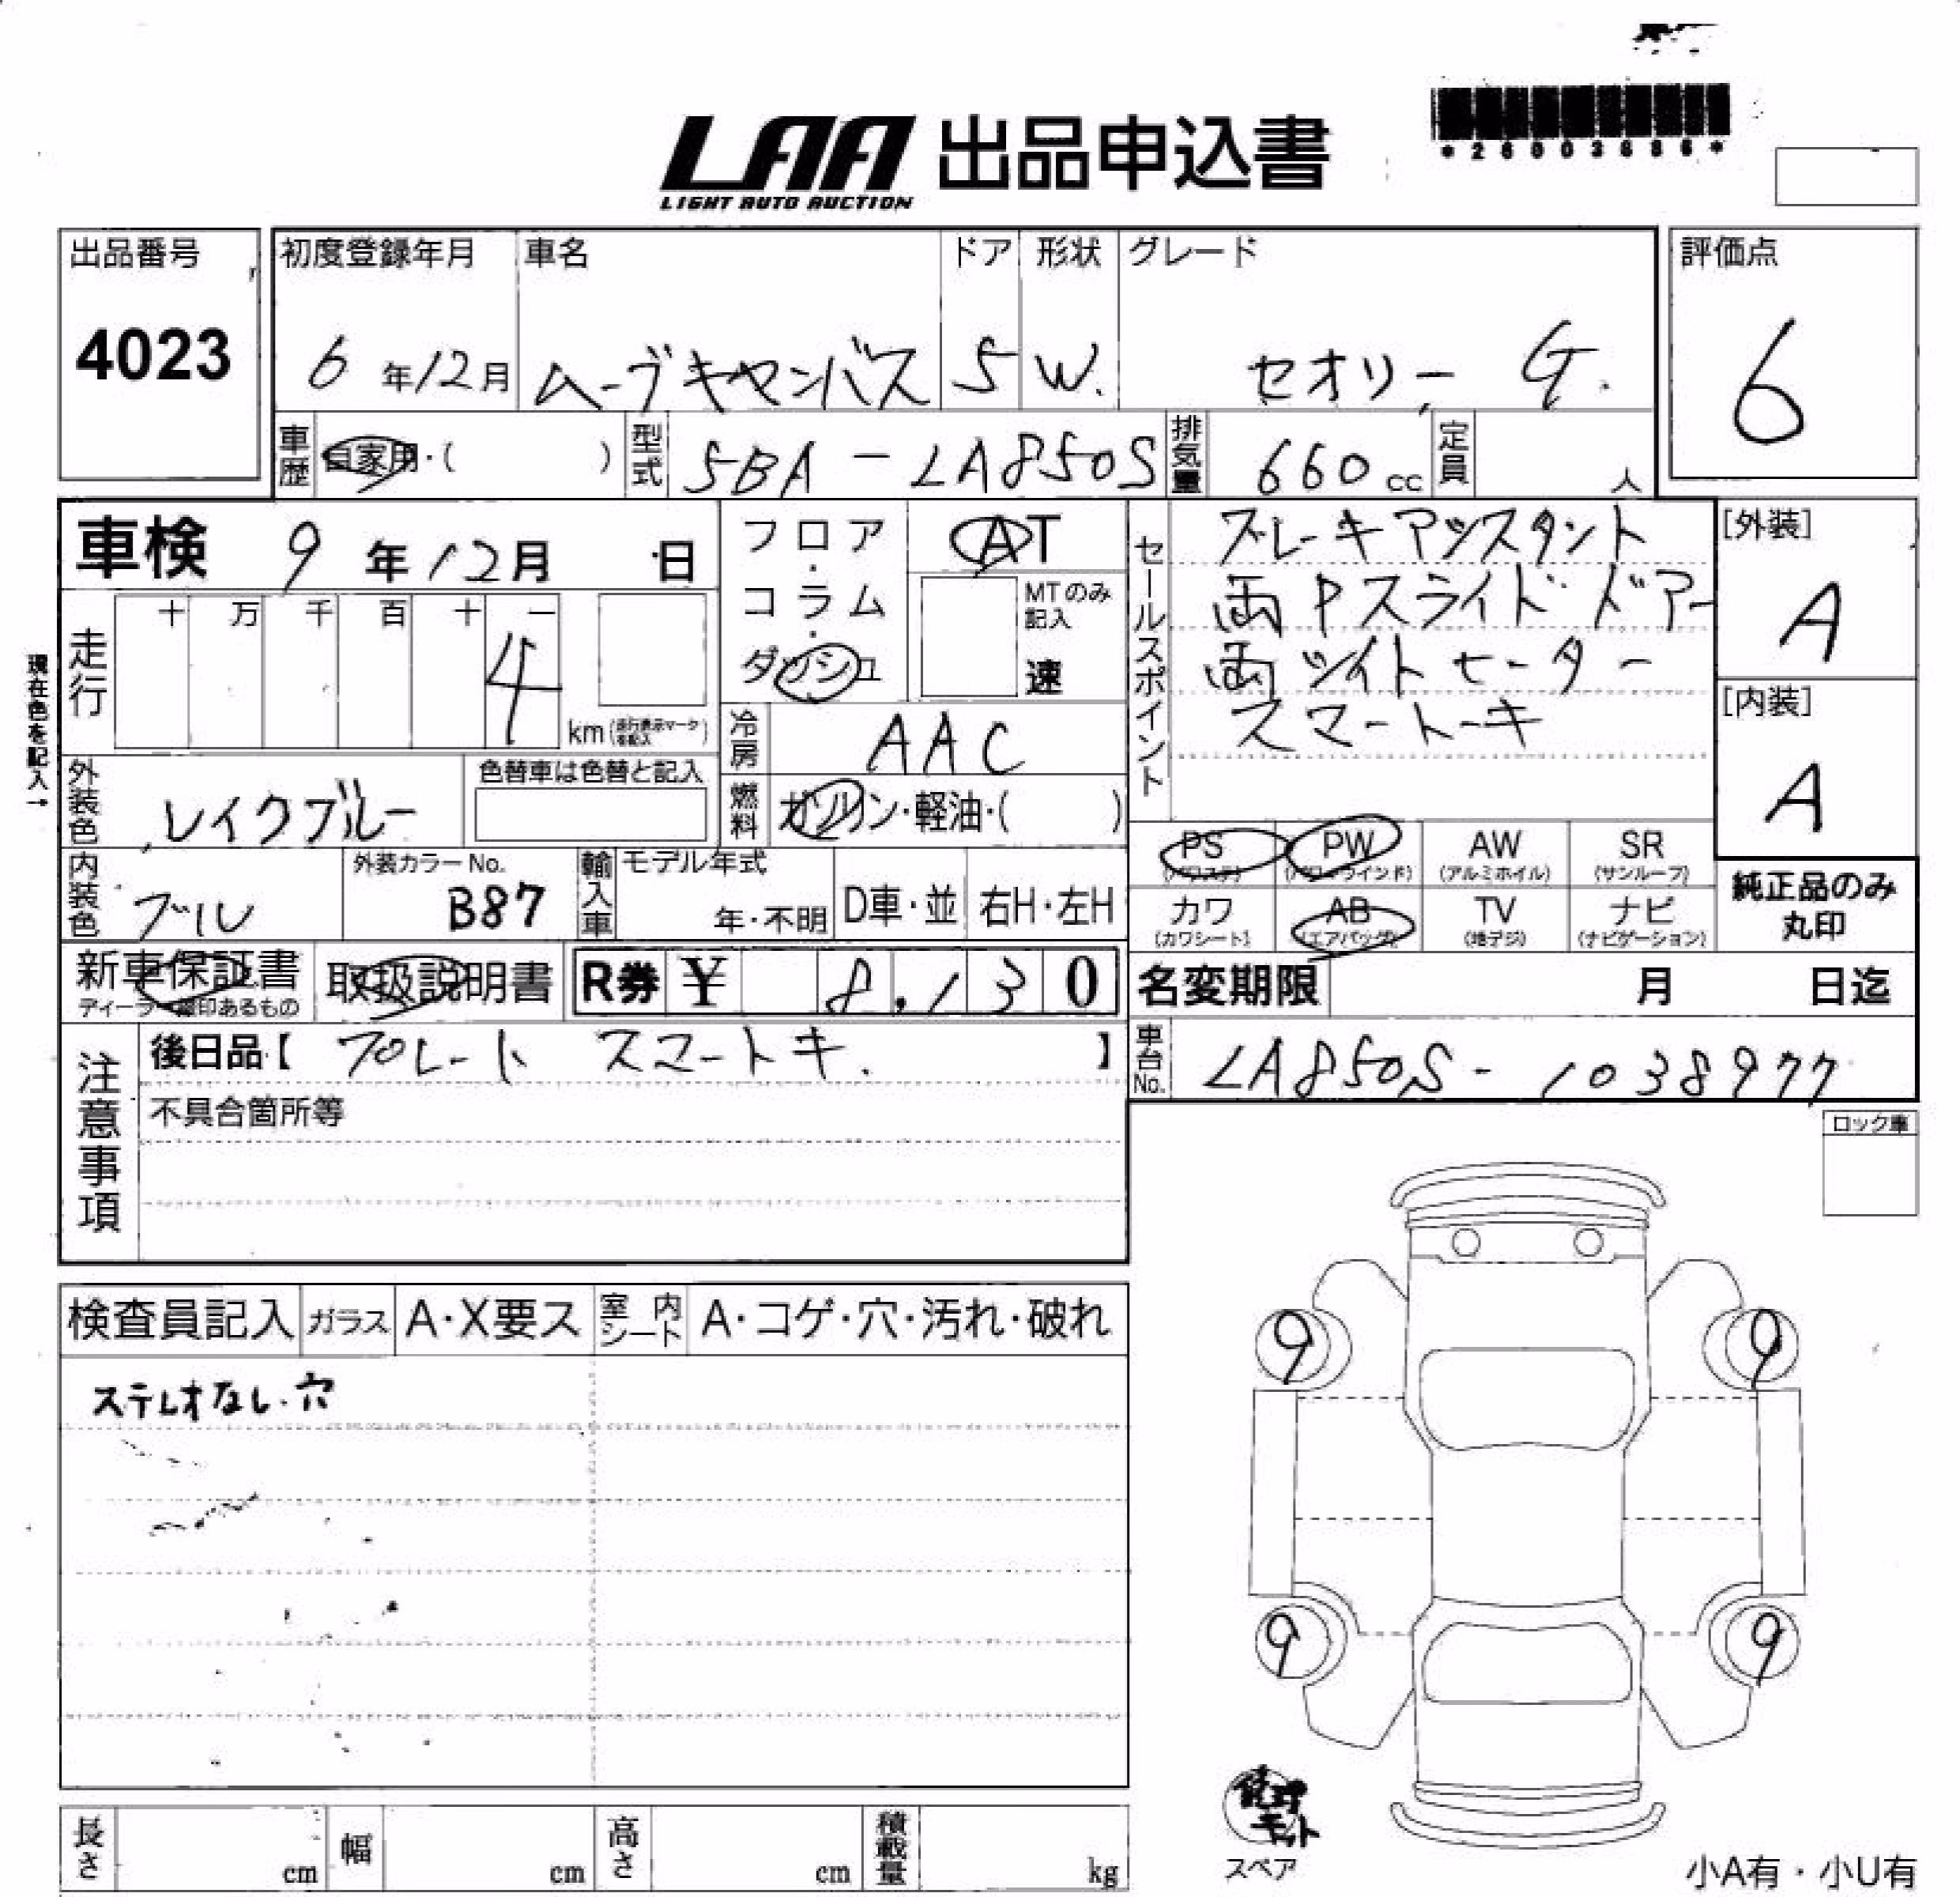 LAA 出品申込書
LIGHT AUTO AUCTION
出品番号
4023
初度登録年月 車名 ドア 形状 グレード
6年12月 ムーヴキャンバス 5 W. セオリー G.
評価点
6
車歴 自家用・( ) 型式 5BA-LA850S 排気量 660cc 定員 人
車検 9年12月 日
フロア・コラム・ダッシュ
AT
MTのみ記入
速
走行 十 万 千 百 十 一
4 km
現在色を記入→
冷房 AAC
燃料 ガソリン・軽油・( )
外装色 レイクブルー
色替車は色替と記入
内装色 ブル
外装カラーNo. B87
輸入車 モデル年式 年・不明 D車・並 右H・左H
セールスポイント
ブレーキアシスタント
両Pスライドドアー
両シイトヒーター
スマートーキ
[外装]
A
[内装]
A
PS (パワステ) PW (パワーウインド) AW (アルミホイル) SR (サンルーフ)
カワ (カワシート) AB (エアバッグ) TV (地デジ) ナビ (ナビゲーション)
純正品のみ
丸印
新車保証書 取扱説明書 R券 ¥ 8,130
名変期限 月 日迄
車台No. LA850S-1038977
注意事項
後日品【 プレート スマートキ. 】
不具合箇所等
ロック車
検査員記入 ガラス A・X要ス 室内シート A・コゲ・穴・汚れ・破れ
ステレオなし・穴
9 9
9 9
スペア
長さ cm 幅 cm 高さ cm 積載量 kg
小A有・小U有